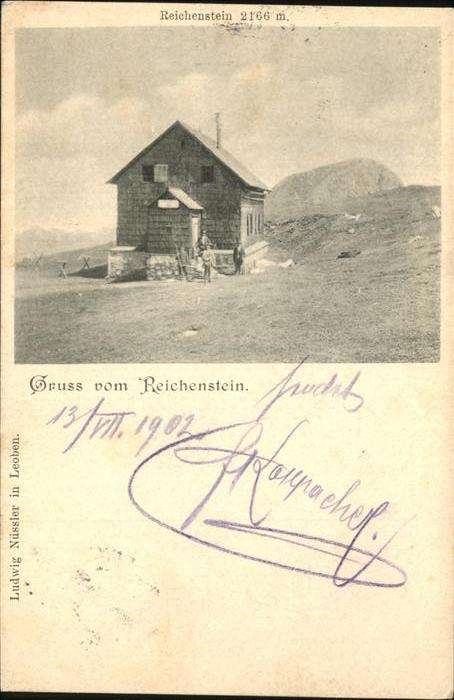 Reichenstein 2166 m.
Gruss vom Reichenstein.
13/VII. 1902
Ludwig Nüssler in Leoben.